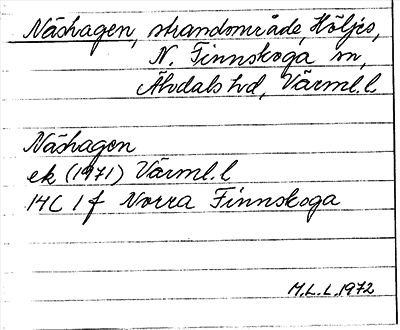 Näshagen, strandområde, Höljes,
N. Finnskoga sn,
Älvdals hd, Värml.l.
Näshagen
ek (1971) Värml.l
14C 1f Norra Finnskoga
M.L.L. 1972